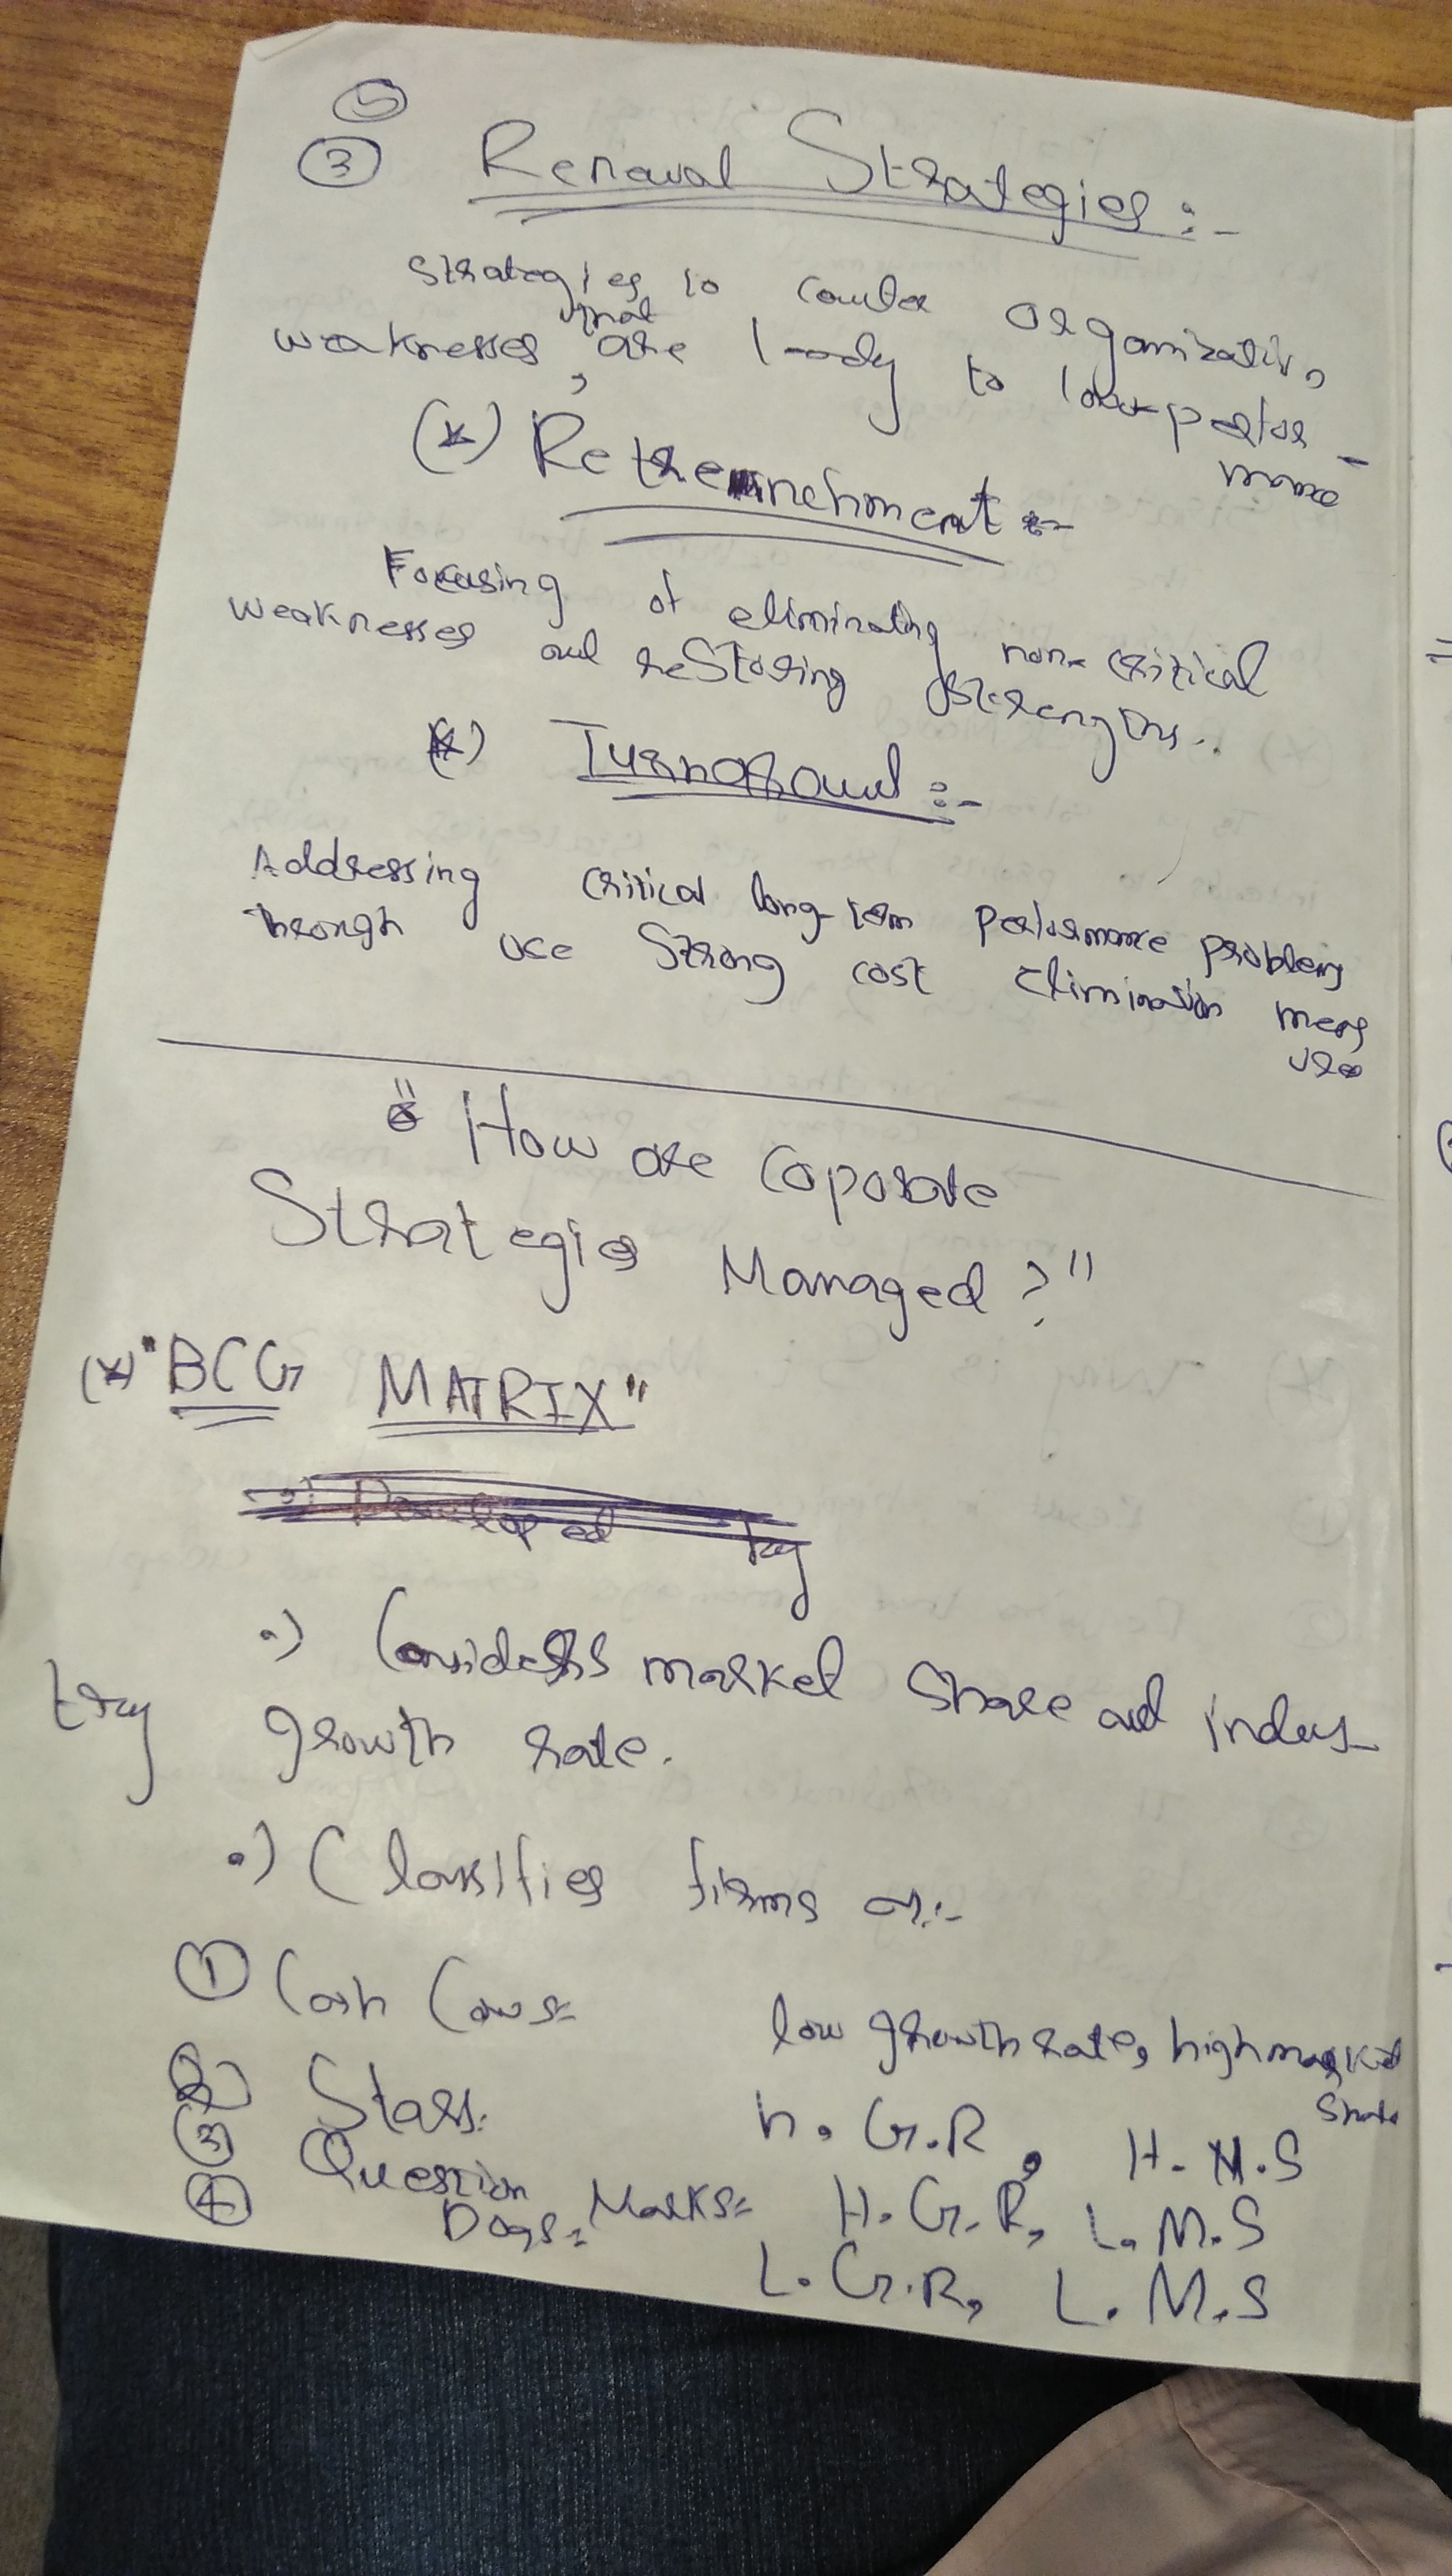 5
3 Renewal Strategies :-
Strategies to counter organization,
weaknesses, that are leady to lower perfor-
mance
(*) Retrenchment :-
Focusing of eliminating non-critical
weaknesses and restoring strengths..
(*) Turnaround :-
Addressing critical long-term performance problems
through use strong cost elimination meas
ures
" How are Coporate
Strategies Managed ? "
(*) "BCG MATRIX"
Developed by
•) Considers market Share and indus-
try growth rate.
•) Classifies firms as:-
1 Cash Cows= low growth rate, high market
Share
2 Stars: h. G.R, H. M.S
3 Question Marks= H.G.R, L.M.S
4 Dogs= L.G.R, L.M.S